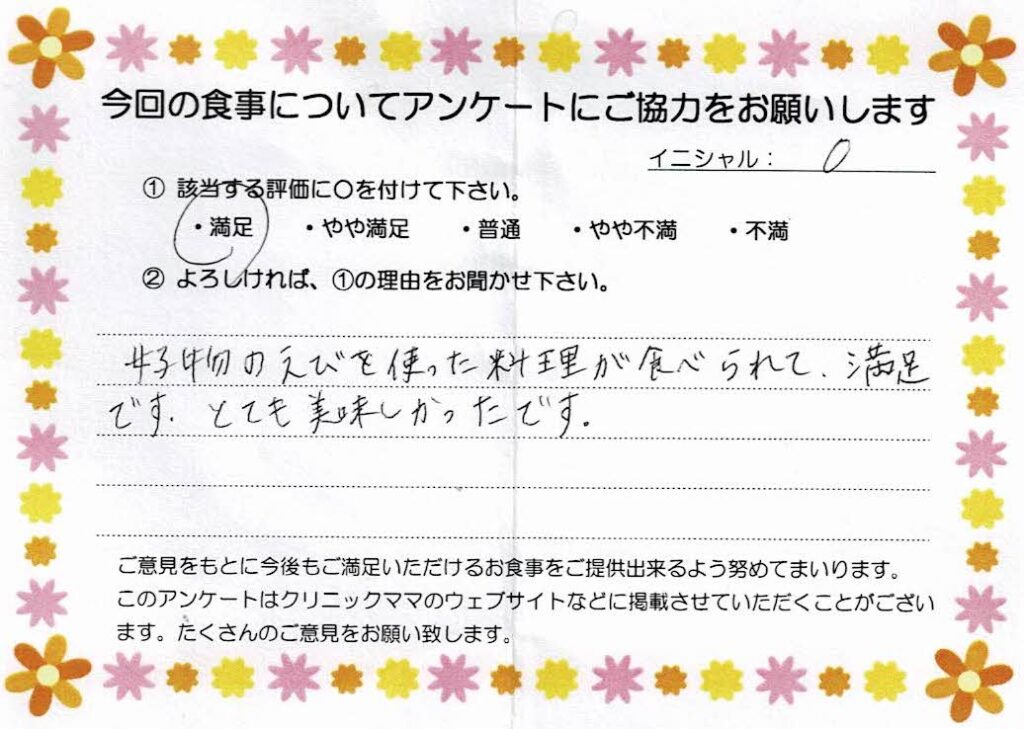 今回の食事についてアンケートにご協力をお願いします
イニシャル： O
① 該当する評価に〇を付けて下さい。
・満足 ・やや満足 ・普通 ・やや不満 ・不満
② よろしければ、①の理由をお聞かせ下さい。
好物のえびを使った料理が食べられて、満足
です。とても美味しかったです。
ご意見をもとに今後もご満足いただけるお食事をご提供出来るよう努めてまいります。
このアンケートはクリニックママのウェブサイトなどに掲載させていただくことがござい
ます。たくさんのご意見をお願い致します。